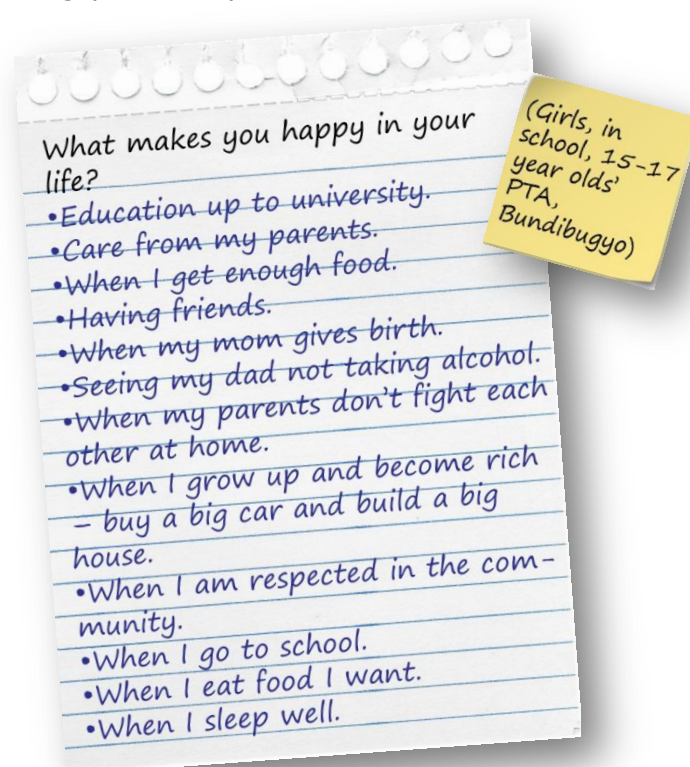 What makes you happy in your
life?
•Education up to university.
•Care from my parents.
•When I get enough food.
•Having friends.
•When my mom gives birth.
•Seeing my dad not taking alcohol.
•When my parents don't fight each
other at home.
•When I grow up and become rich
– buy a big car and build a big
house.
•When I am respected in the com-
munity.
•When I go to school.
•When I eat food I want.
•When I sleep well.
(Girls, in
school, 15-17
year olds'
PTA,
Bundibugyo)